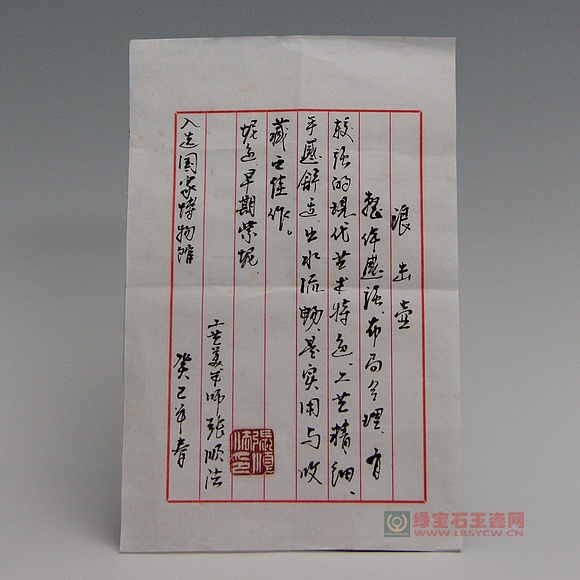 浪出壶
整体感强、布局合理、有
较强的现代艺术特色、工艺精细、
手感舒适、出水流畅、是实用与收
藏之佳作。
妮色、早期紫妮
工艺美术师张顺法
入选国家博物馆
癸巳年春
張順
法印
绿宝石玉瓷网
www.LBSYCW.CN